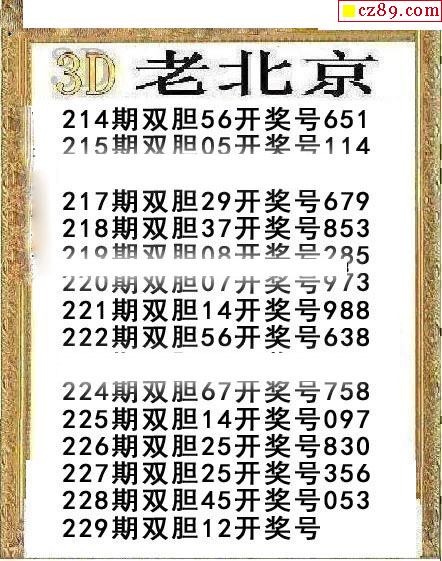 cz89.com
3D 老北京
214期双胆56开奖号651
215期双胆05开奖号114
217期双胆29开奖号679
218期双胆37开奖号853
219期双胆08开奖号285
220期双胆07开奖号973
221期双胆14开奖号988
222期双胆56开奖号638
224期双胆67开奖号758
225期双胆14开奖号097
226期双胆25开奖号830
227期双胆25开奖号356
228期双胆45开奖号053
229期双胆12开奖号